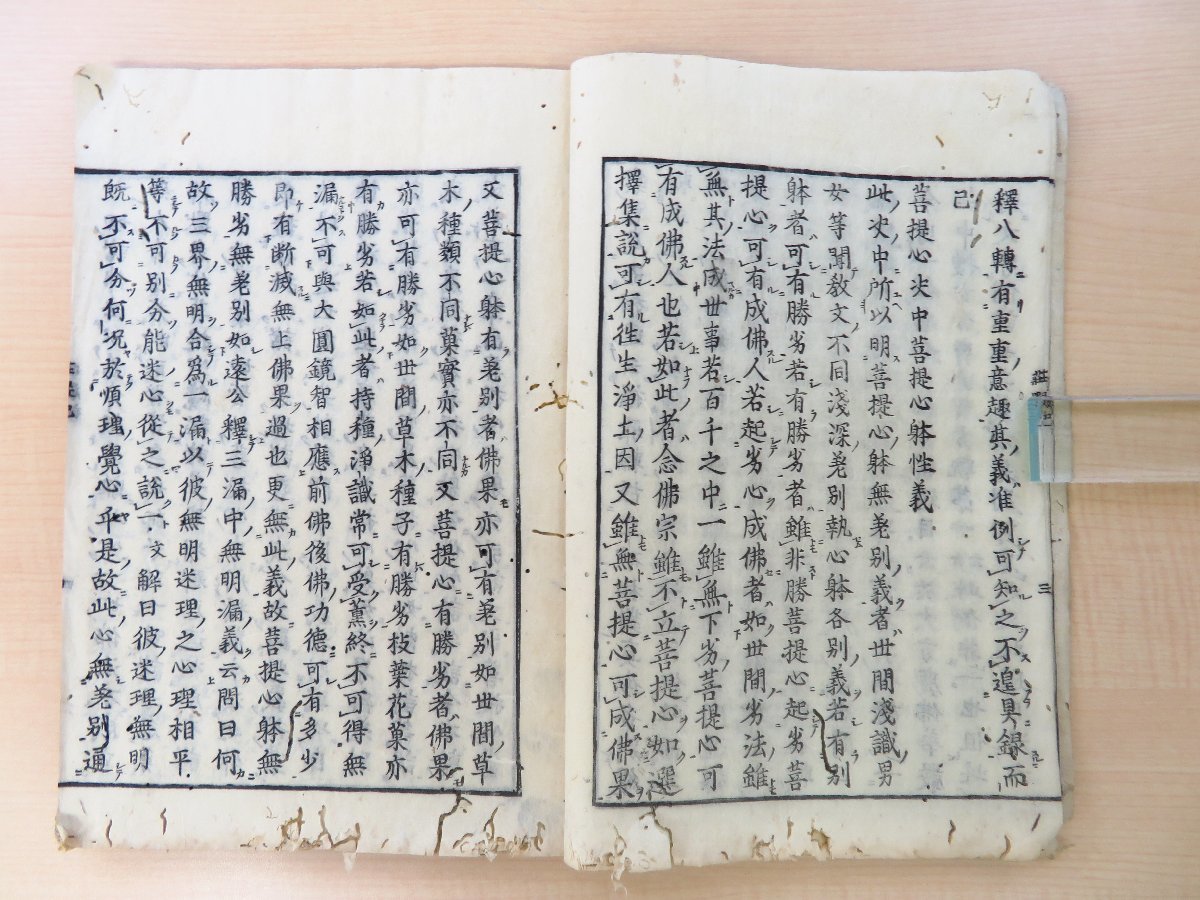 釋八轉有重重意趣其義准例可知之不遑具録而
已
菩提心决中菩提心躰性義
此决中所以明菩提心躰無差别義者世間淺識男
女等聞敎文不同淺深差别執心躰各别義若有别
躰者可有勝劣若有勝劣者雖非勝菩提心起劣菩
提心可有成佛人若起劣心成佛者如世間劣法雖
無其法成世事若百千之中一雖無下劣菩提心可
有成佛人也若如此者念佛宗雖不立菩提心如選
擇集説可有徃生淨土因又雖無菩提心可成佛果
又菩提心躰有差别者佛果亦可有差别如世間草
木種類不同菓實亦不同又菩提心有勝劣者佛果
亦可有勝劣如世間草木種子有勝劣枝葉花菓亦
有勝劣若如此者持種淨識常可受薫終不可得無
漏不可與大圓鏡智相應前佛後佛功德可有多少
即有断滅無上佛果過也更無此義故菩提心躰無
勝劣無差别如遠公釋三漏中無明漏義云問曰何
故三界無明合爲一漏以彼無明迷理之心理相平
等不可别分能迷心從之説文解曰彼迷理無明
既不可分何况於順理覺心乎是故此心無差别通
三